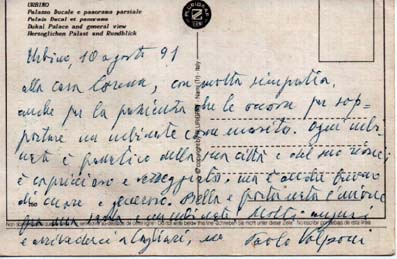 URBINO
Palazzo Ducale e panorama parziale
Palais Ducal et panorama
Dukal Palace and general view
Herzoglichen Palast und Rundblick
Urbino, 10 agosto 91
alla cara Lorena, con molta simpatia,
anche per la pazienza che le occorre per sop=
portare un urbinate come marito. Ogni urbi-
nate è fanatico della sua città e del suo
è capriccioso e ma è anche
di cuore e generoso. Bella e fortunata è l'unione
fra una sarda e un urbinate. Molti auguri
e arrivederci a Cagliari, suo
Paolo Volponi